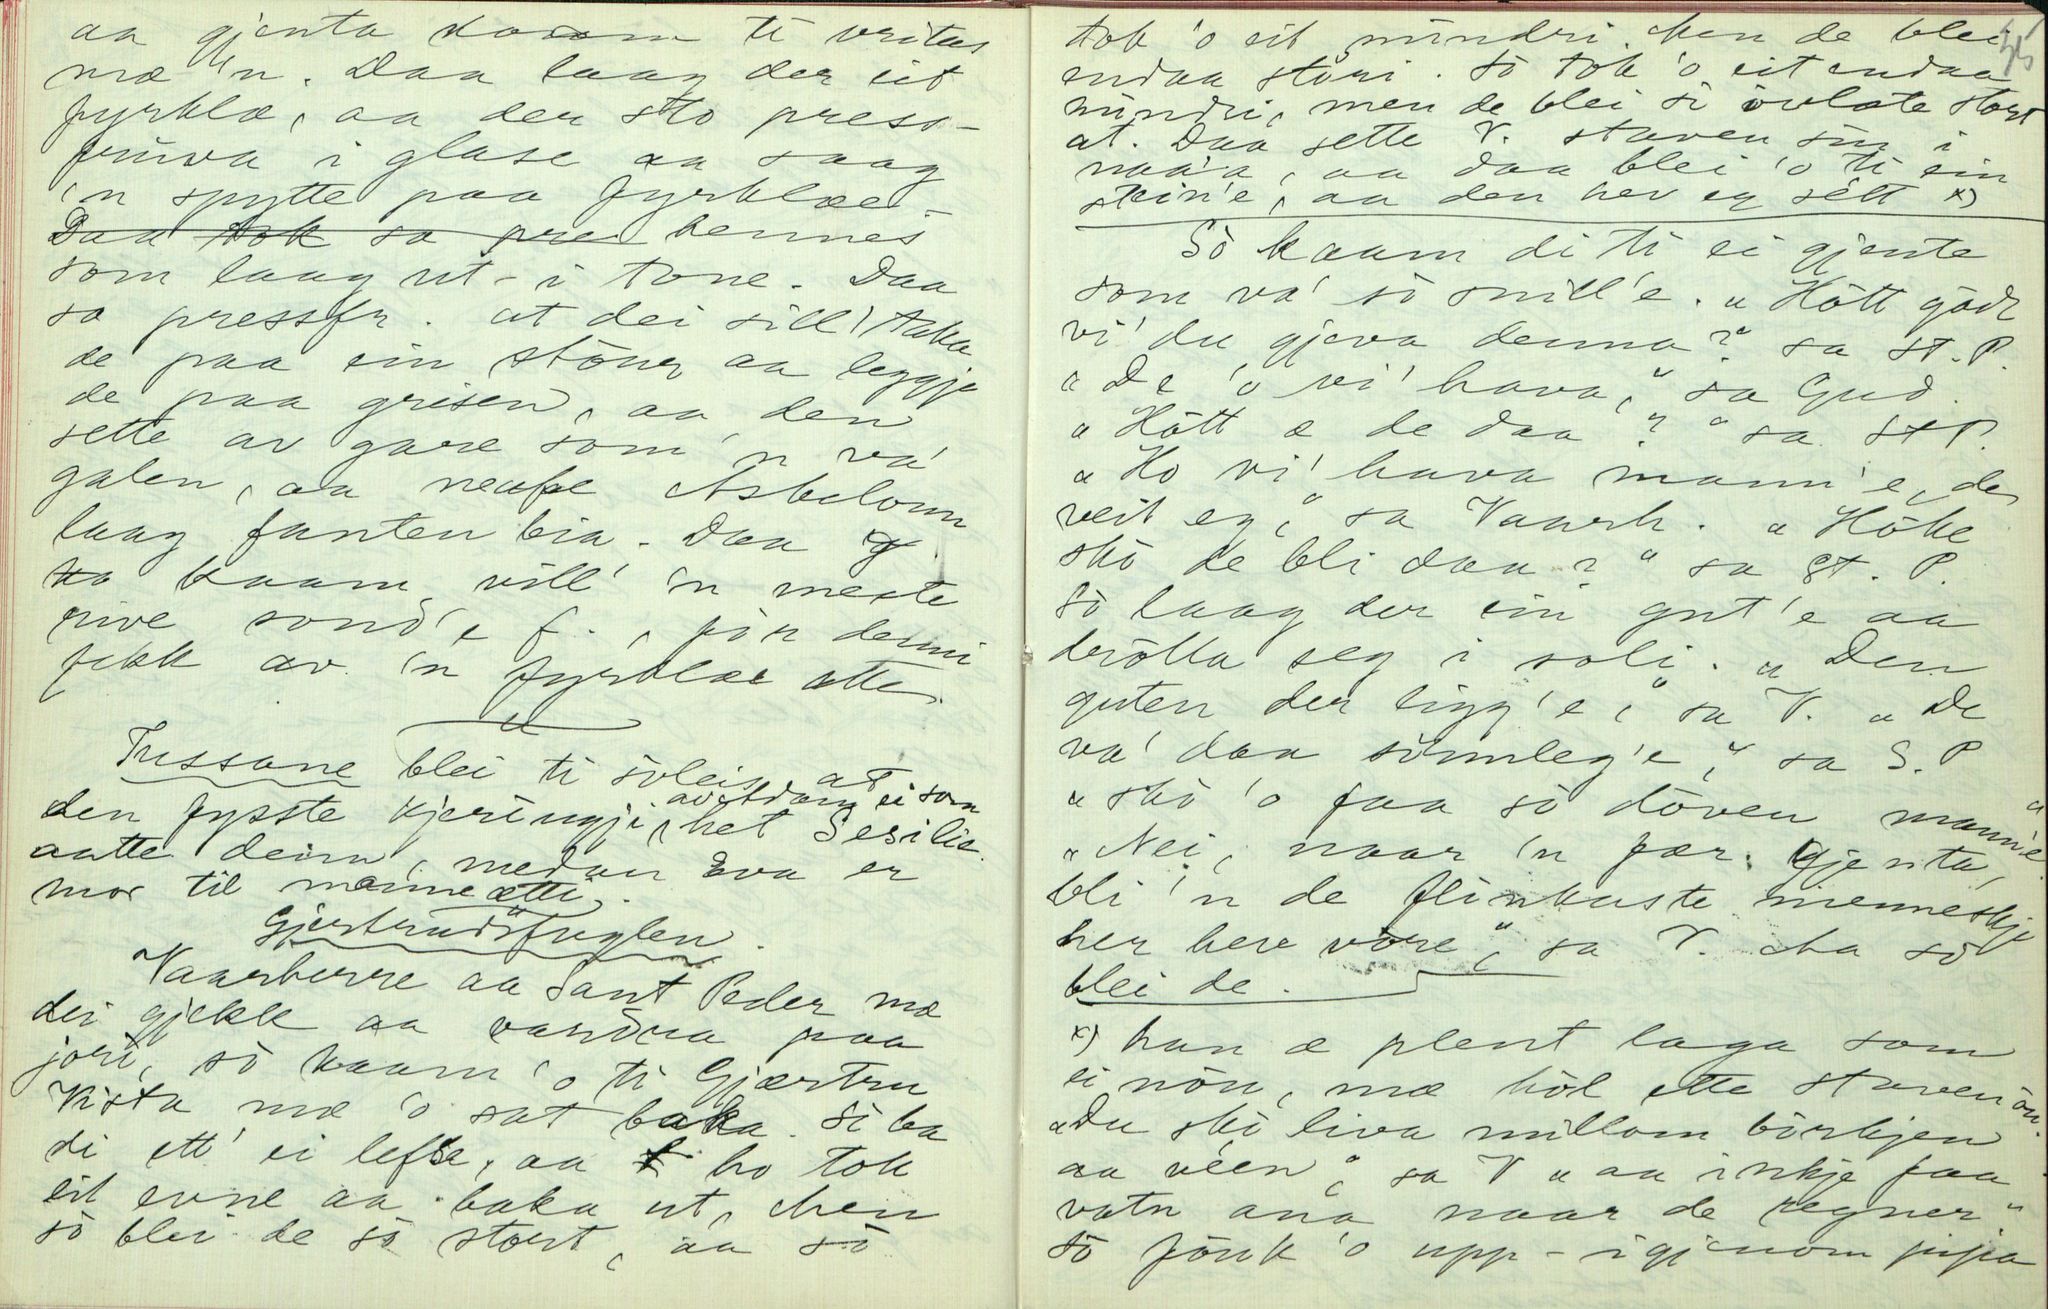 aa gjenta kaam ti vritas
mæ 'n. Daa laag der eit
fyrklæ, aa der sto press-
frúva i glase aa saag
'n spytte paa fyrklæe.
Daa tok sa pre hennes
som laag ut-i tone. Daa
sa pressfr. at dei sill' taka
de paa ein stöur aa leggje
de paa grisen, aa den
sette av gare som 'n va'
galen, aa neafe Asbelonn
laag fanten bia. Daa
ho kaam, vill' 'n meste
rive sond'e f. , för denni
fekk av 'n fyrklæe atte.
Tussane blei ti soleis, at
den fysste kjeringji, av Adam ei som het Sesilie
aatte deim, medan Eva er
mor til manneætti.
Gjertrudsfuglen.
Vaarherre aa Sant Peder mæ
dei gjekk aa vandra paa
jori, sò kaam 'o ti Gjærtru
Kista mæ 'o sat baka. Sò ba
di ett' ei lefse, aa ho tok
eit evne aa baka ut, Men
sò blei de sò stort, aa sò
45
tok 'o eit mindri. Men de blei
endaa störi. Sò tok 'o eit endaa
mindri, men de blei sò òvlæte stort
at. Daa sette V. staven sin i
naa'a, aa daa blei 'o ti ein
stein'e, aa den hev eg sétt x)
Sò kaam di ti ei gjente
som va' sò snill'e. "Hòtt godt
vi' du gjeva denna?" sa St. P.
"De 'o vi' hava," sa Gud.
"Hòtt æ de daa?" sa St P.
"Ho vi' hava mann'e, de
veit eg," sa Vaarh. "Hòke
skò de bli daa?" sa St. P.
Sò laag der ein gut'e aa
drölla seg i soli. "Den
guten der ligg'e," sa V. "De
va' daa sömleg'e," sa S. P
"skò 'o faa sò döven mann'e."
"Nei, naar 'n fær gjenta,
bli 'n de flinkaste menneskje
her heve vöre," sa V. Aa sò
blei de.
x) han æ plent laga som
ei nòn, mæ hòl ette staven òn.
"Du skò liva millom börkjen
aa véen," sa V "aa inkje faa
vatn ana naar de regner"
Sò fòuk 'o upp-igjenom pipa